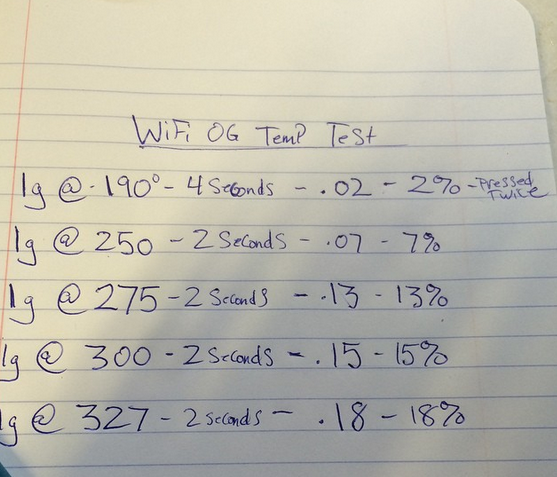 WiFi OG Temp Test
1g @ 190° - 4 Seconds - .02 - 2% - Pressed Twice
1g @ 250 - 2 Seconds - .07 - 7%
1g @ 275 - 2 Seconds - .13 - 13%
1g @ 300 - 2 Seconds - .15 - 15%
1g @ 327 - 2 seconds - .18 - 18%